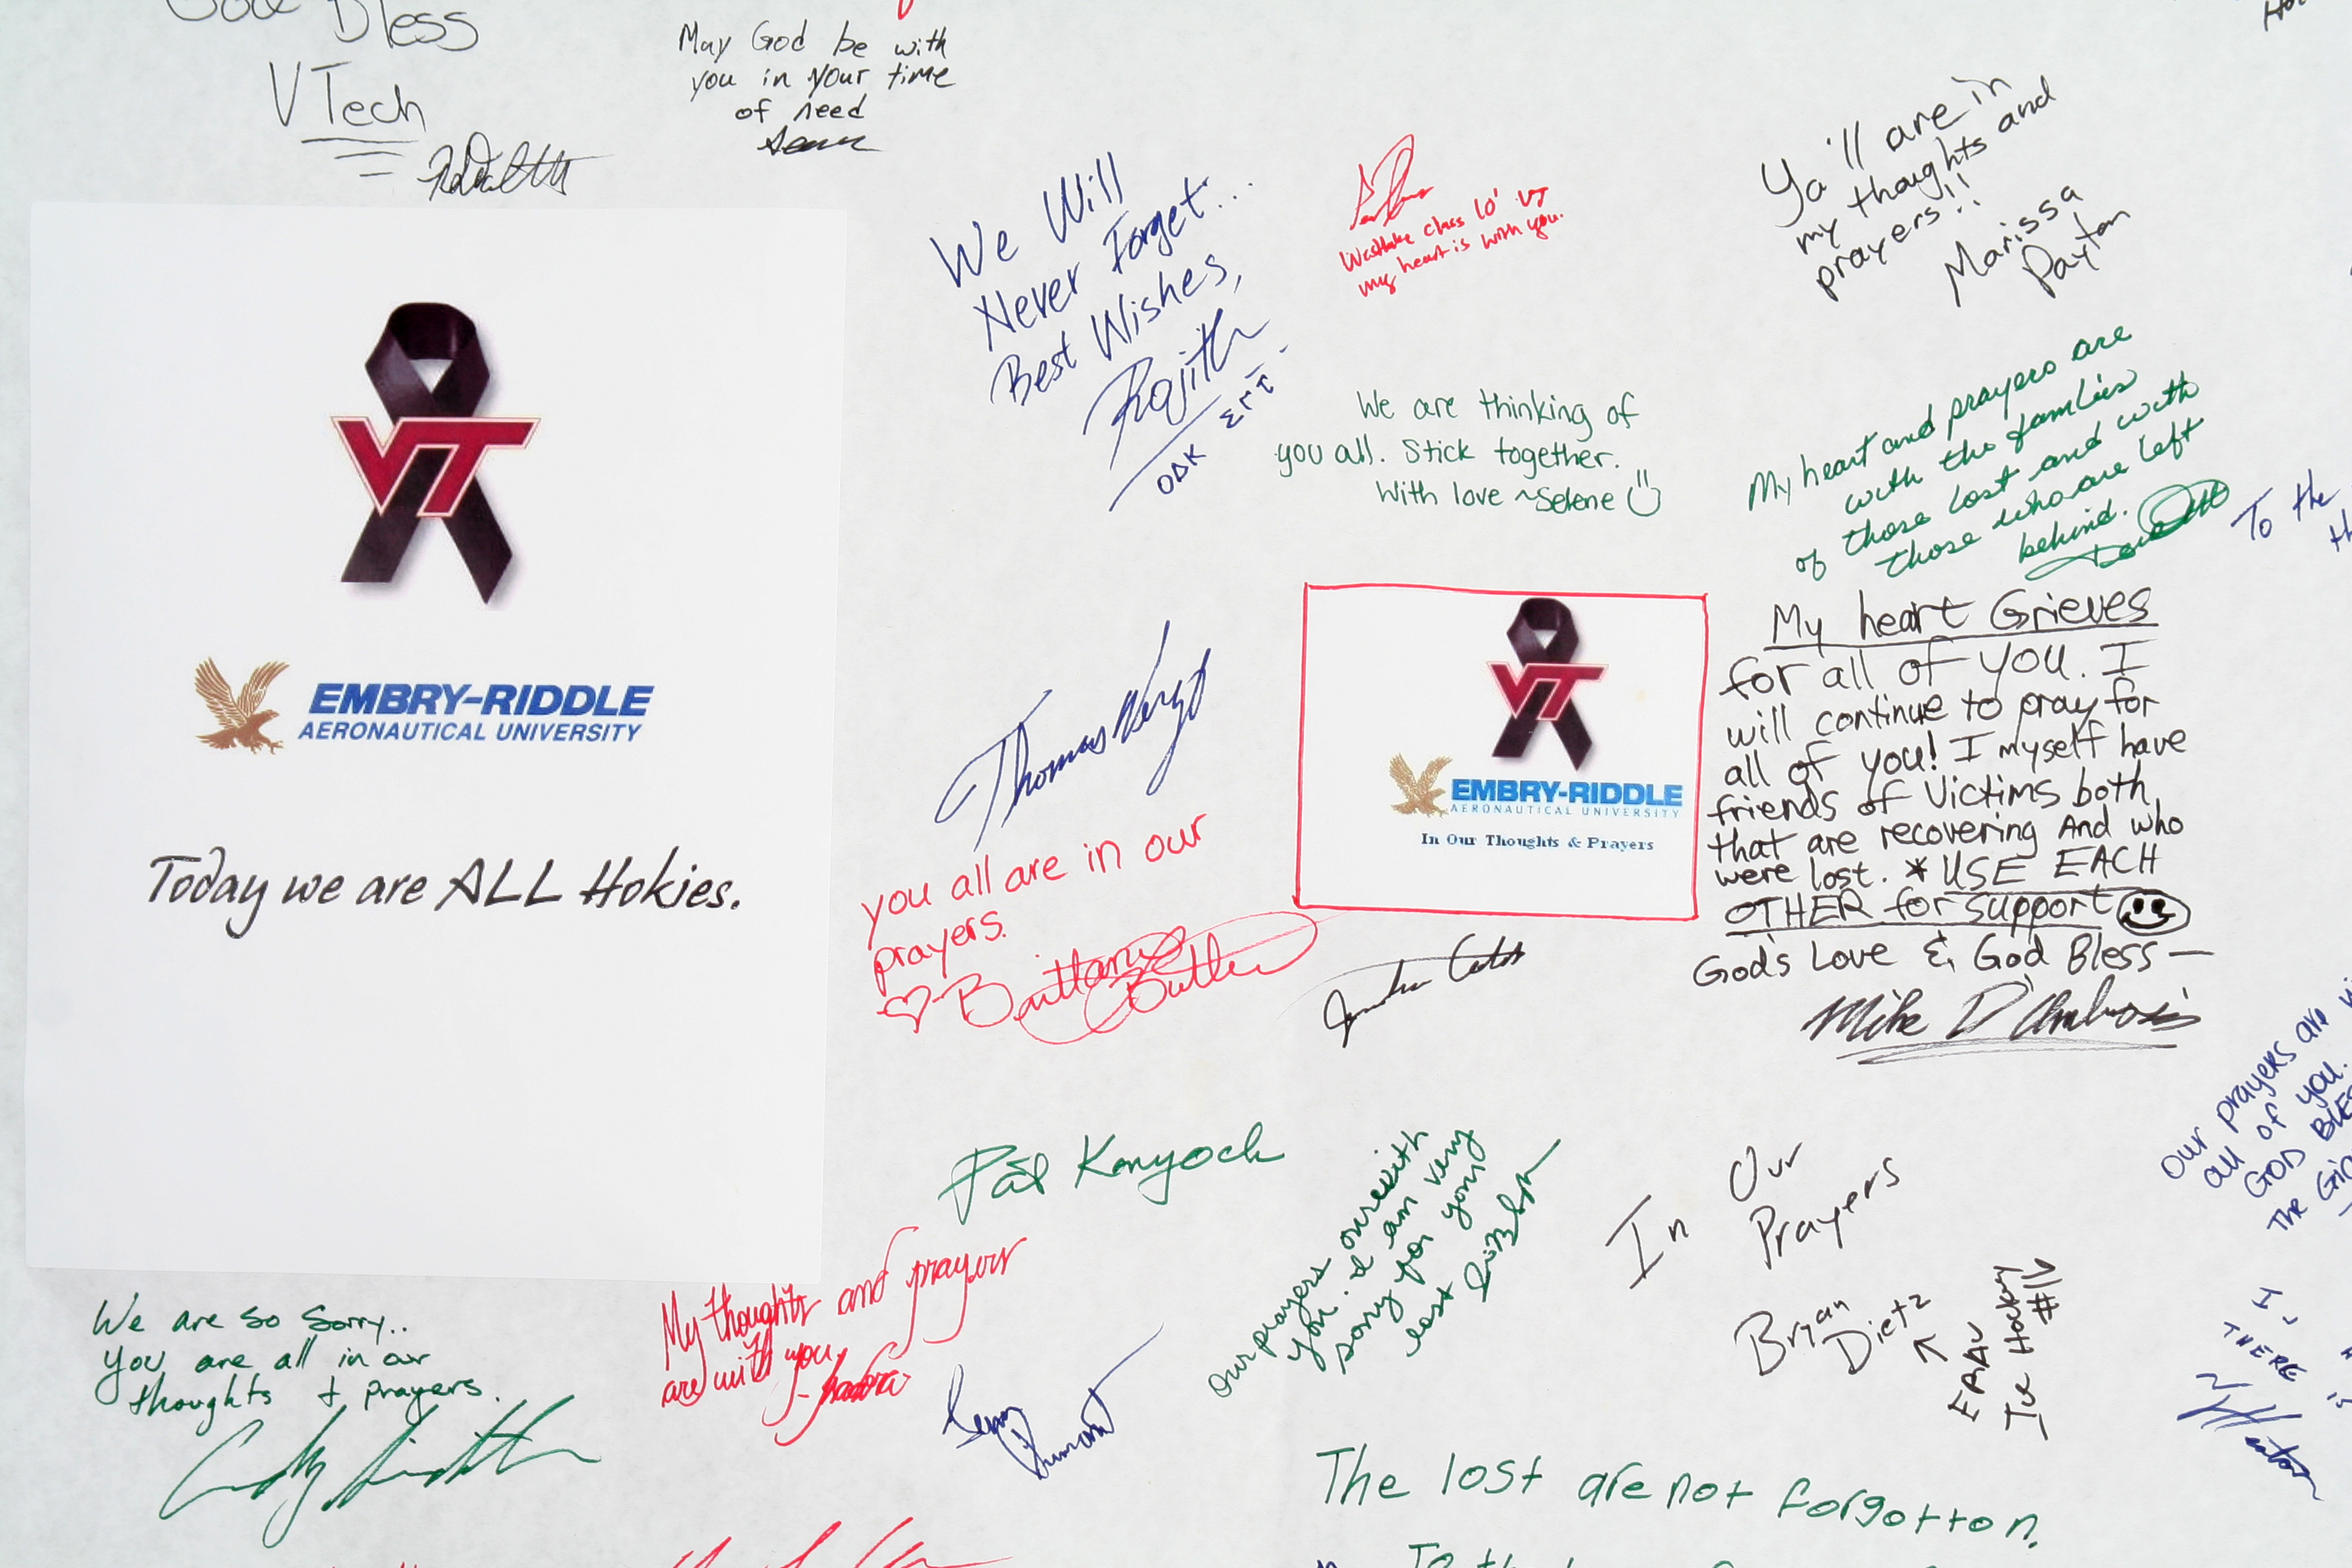 God Bless
VTech
May God be with
you in your time
of need
Sean
We Will
Never Forget...
Best Wishes,
Rajith
ΟΔΚ ΣΓΤ
Westlake class 10' VT
my heart is with you.
Ya'll are in
my thoughts and
prayers!!
Marissa
Payton
We are thinking of
you all. Stick together.
With love ~Selene
My heart and prayers are
with the families
of those lost and with
those who are left
behind.
To the
VT
EMBRY-RIDDLE
AERONAUTICAL UNIVERSITY
Today we are ALL Hokies.
Thomas
you all are in our
prayers.
Brittany
Butler
VT
EMBRY-RIDDLE
AERONAUTICAL UNIVERSITY
In Our Thoughts & Prayers
My heart Grieves
for all of you. I
will continue to pray for
all of you! I myself have
friends of Victims both
that are recovering And who
were lost. * USE EACH
OTHER for support
God's Love & God Bless —
Mike D'Ambrosio
Our prayers are
all of you.
GOD
The
Pat Konyock
Our prayers are with
you. I am very
sorry for your
lost
In Our
Prayers
Bryan
Dietz
ERAU
Ice Hockey
#11
We are so sorry..
you are all in our
thoughts + prayers.
My thoughts and prayers
are with you
I
THERE
The lost are not forgotton.